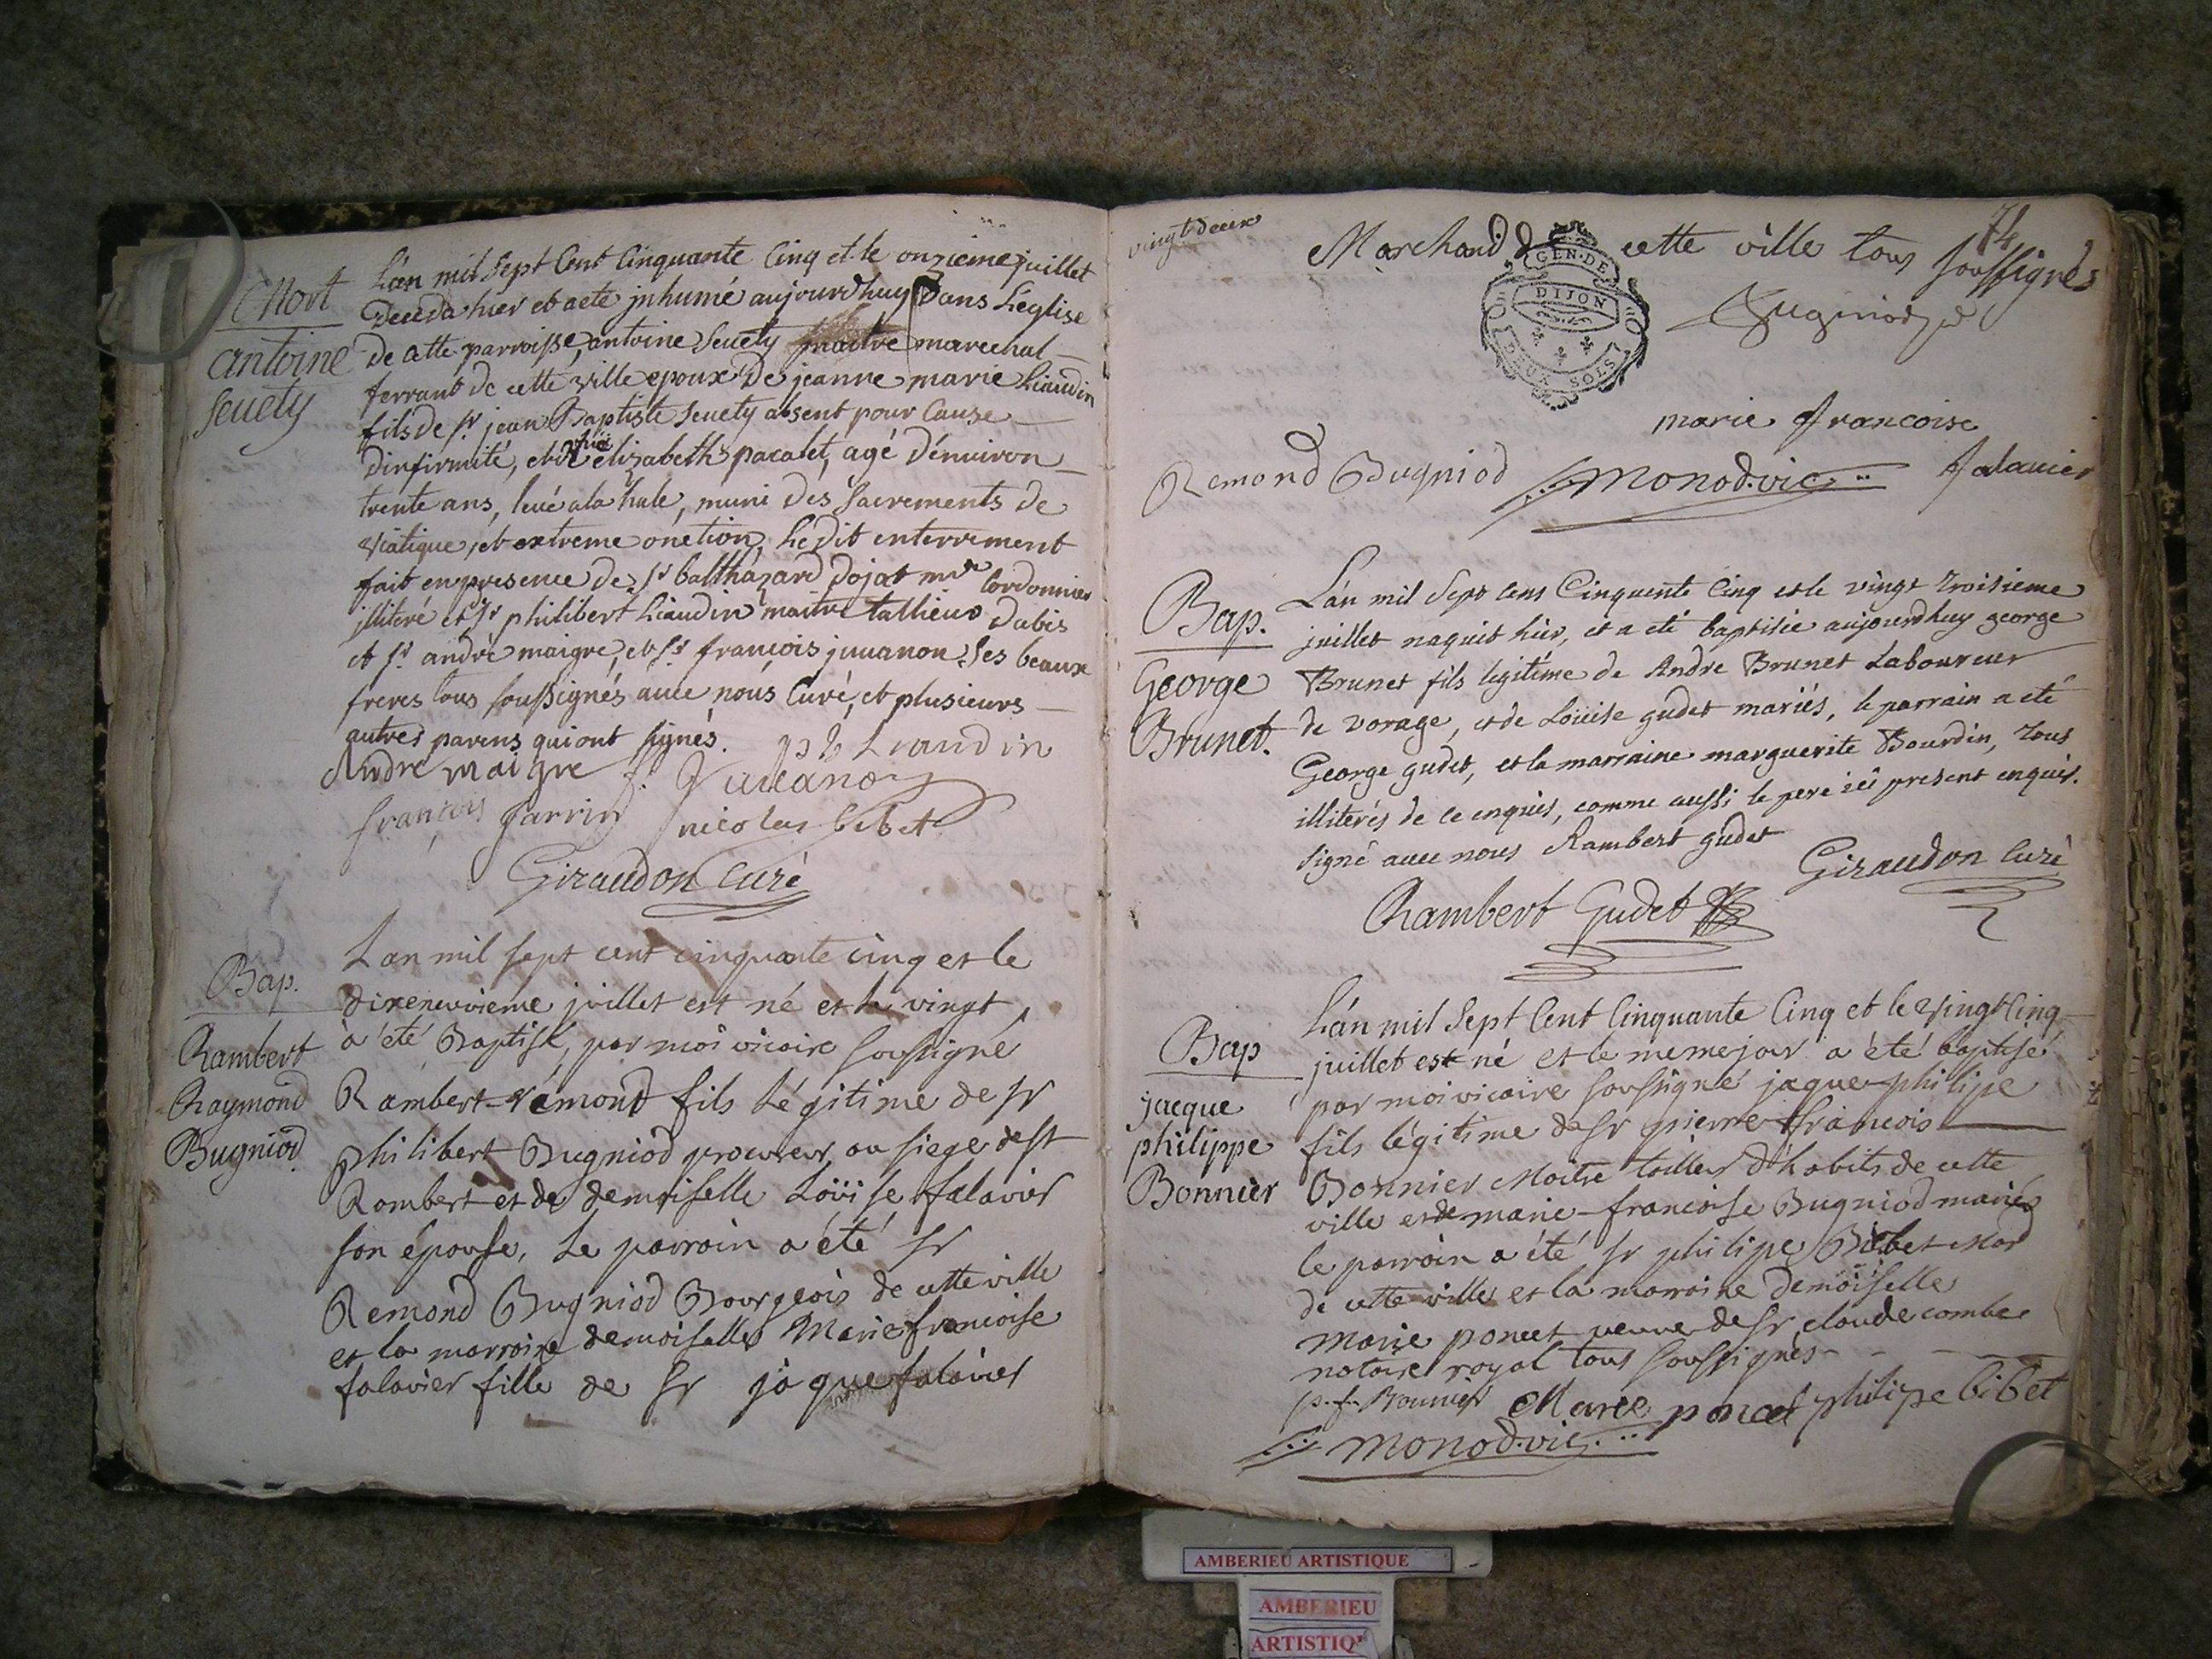 Mort
antoine
Seuety
L'an mil Sept Cent Cinquante Cinq et le onzieme juillet
Deceda hier et a eté jnhumé aujourdhuy Dans L'eglise
de cette parroisse, antoine Seuety maitre marechal
ferrant de cette ville epoux De jeanne marie Liaudin
fils de sr jean Baptiste Seuety absent pour Cause
Dinfirmité, et de elizabeth pacalet, agé D'enuiron
trente ans, leué a la hale, muni des Sacrements de
Viatique, et extreme onction, Le dit enterrement
fait en presence de sr balthazard Dojat md Cordonnier
jlliteré et sr philibert Liaudin maitre tallieur Dabis
et sr andrè maigre, et sr françois juuanon Ses beaux
freres tous soussignés auec nous Curé, et plusieurs
autres parens qui ont signés. ph Liaudin
Andre maigre f. Juuanon
françois Jarrin nicolas bibet
Giraudon Curé
Bap.
Rambert
Raymond
Bugniod
Lan mil sept cent cinquante cinq et le
dixeneuvieme juillet est né et le vingt
à été Baptisé, par moi vicaire soussigné
Rambert-rémond fils Légitime de sr
philibert Bugniod procureur au siege de st
Rambert et de demoiselle Loüise falavier
son épouse, Le parrain a été sr
Remond Bugniod Bourgeois de cette ville
et la marraine demoiselle Marie francoise
falavier fille de sr jaque falavier
vingt deux
74
Marchand de cette ville tous soussignés
GEN. DE
DIJON
DEUX SOLS
Bugniod
marie francoise
Remond Bugniod Monod.vic. falauier
Bap.
George
Brunet.
L'an mil Sept cens Cinquente Cinq et le vingt troisieme
juillet naquit hier, et a eté baptisie aujourdhuy george
Brunet fils legitime de Andre Brunet Laboureur
de vorage, et de Loüise gudet mariés, le parrain a eté
George gudet, et la marraine marguerite Bourdin, Tous
illiterés de ce enquis, comme aussi le pere ici present enquis.
signé auec nous Rambert gudet
Giraudon Curé
Rambert Gudet
Bap
jacque
philippe
Bonnier
L'an mil Sept Cent Cinquante Cinq et le Vingt Cinq
juillet est né et le meme jour a été baptisé
par moi vicaire soussigné jaque philipe
fils légitime de sr pierre francois
Bonnier Maitre tailleur d'habits de cette
ville et de marie-francoise Bugniod mariés
le parrain a été sr philipe Bibet Mard
de cette ville et la marraine demoiselle
Marie poncet veuve de sr claude combe
notaire royal tous soussignés
p. f. Bonnier Marie poncet philipe bibet
Monod.vic.
AMBERIEU ARTISTIQUE
AMBERIEU
ARTISTIQ